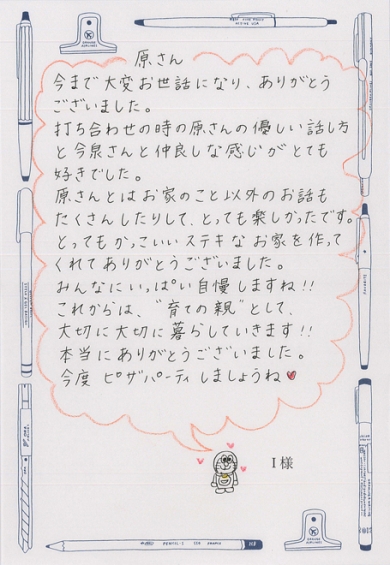 原さん
今まで大変お世話になり、ありがとう
ございました。
打ち合わせの時の原さんの優しい話し方
と今泉さんと仲良しな感じがとても
好きでした。
原さんとはお家のこと以外のお話も
たくさんしたりして、とっても楽しかったです。
とってもかっこいいステキなお家を作って
くれてありがとうございました。
みんなにいっぱい自慢しますね!!
これからは、"育ての親"として、
大切に大切に暮らしていきます!!
本当にありがとうございました。
今度 ピザパーティしましょうね♥
I様